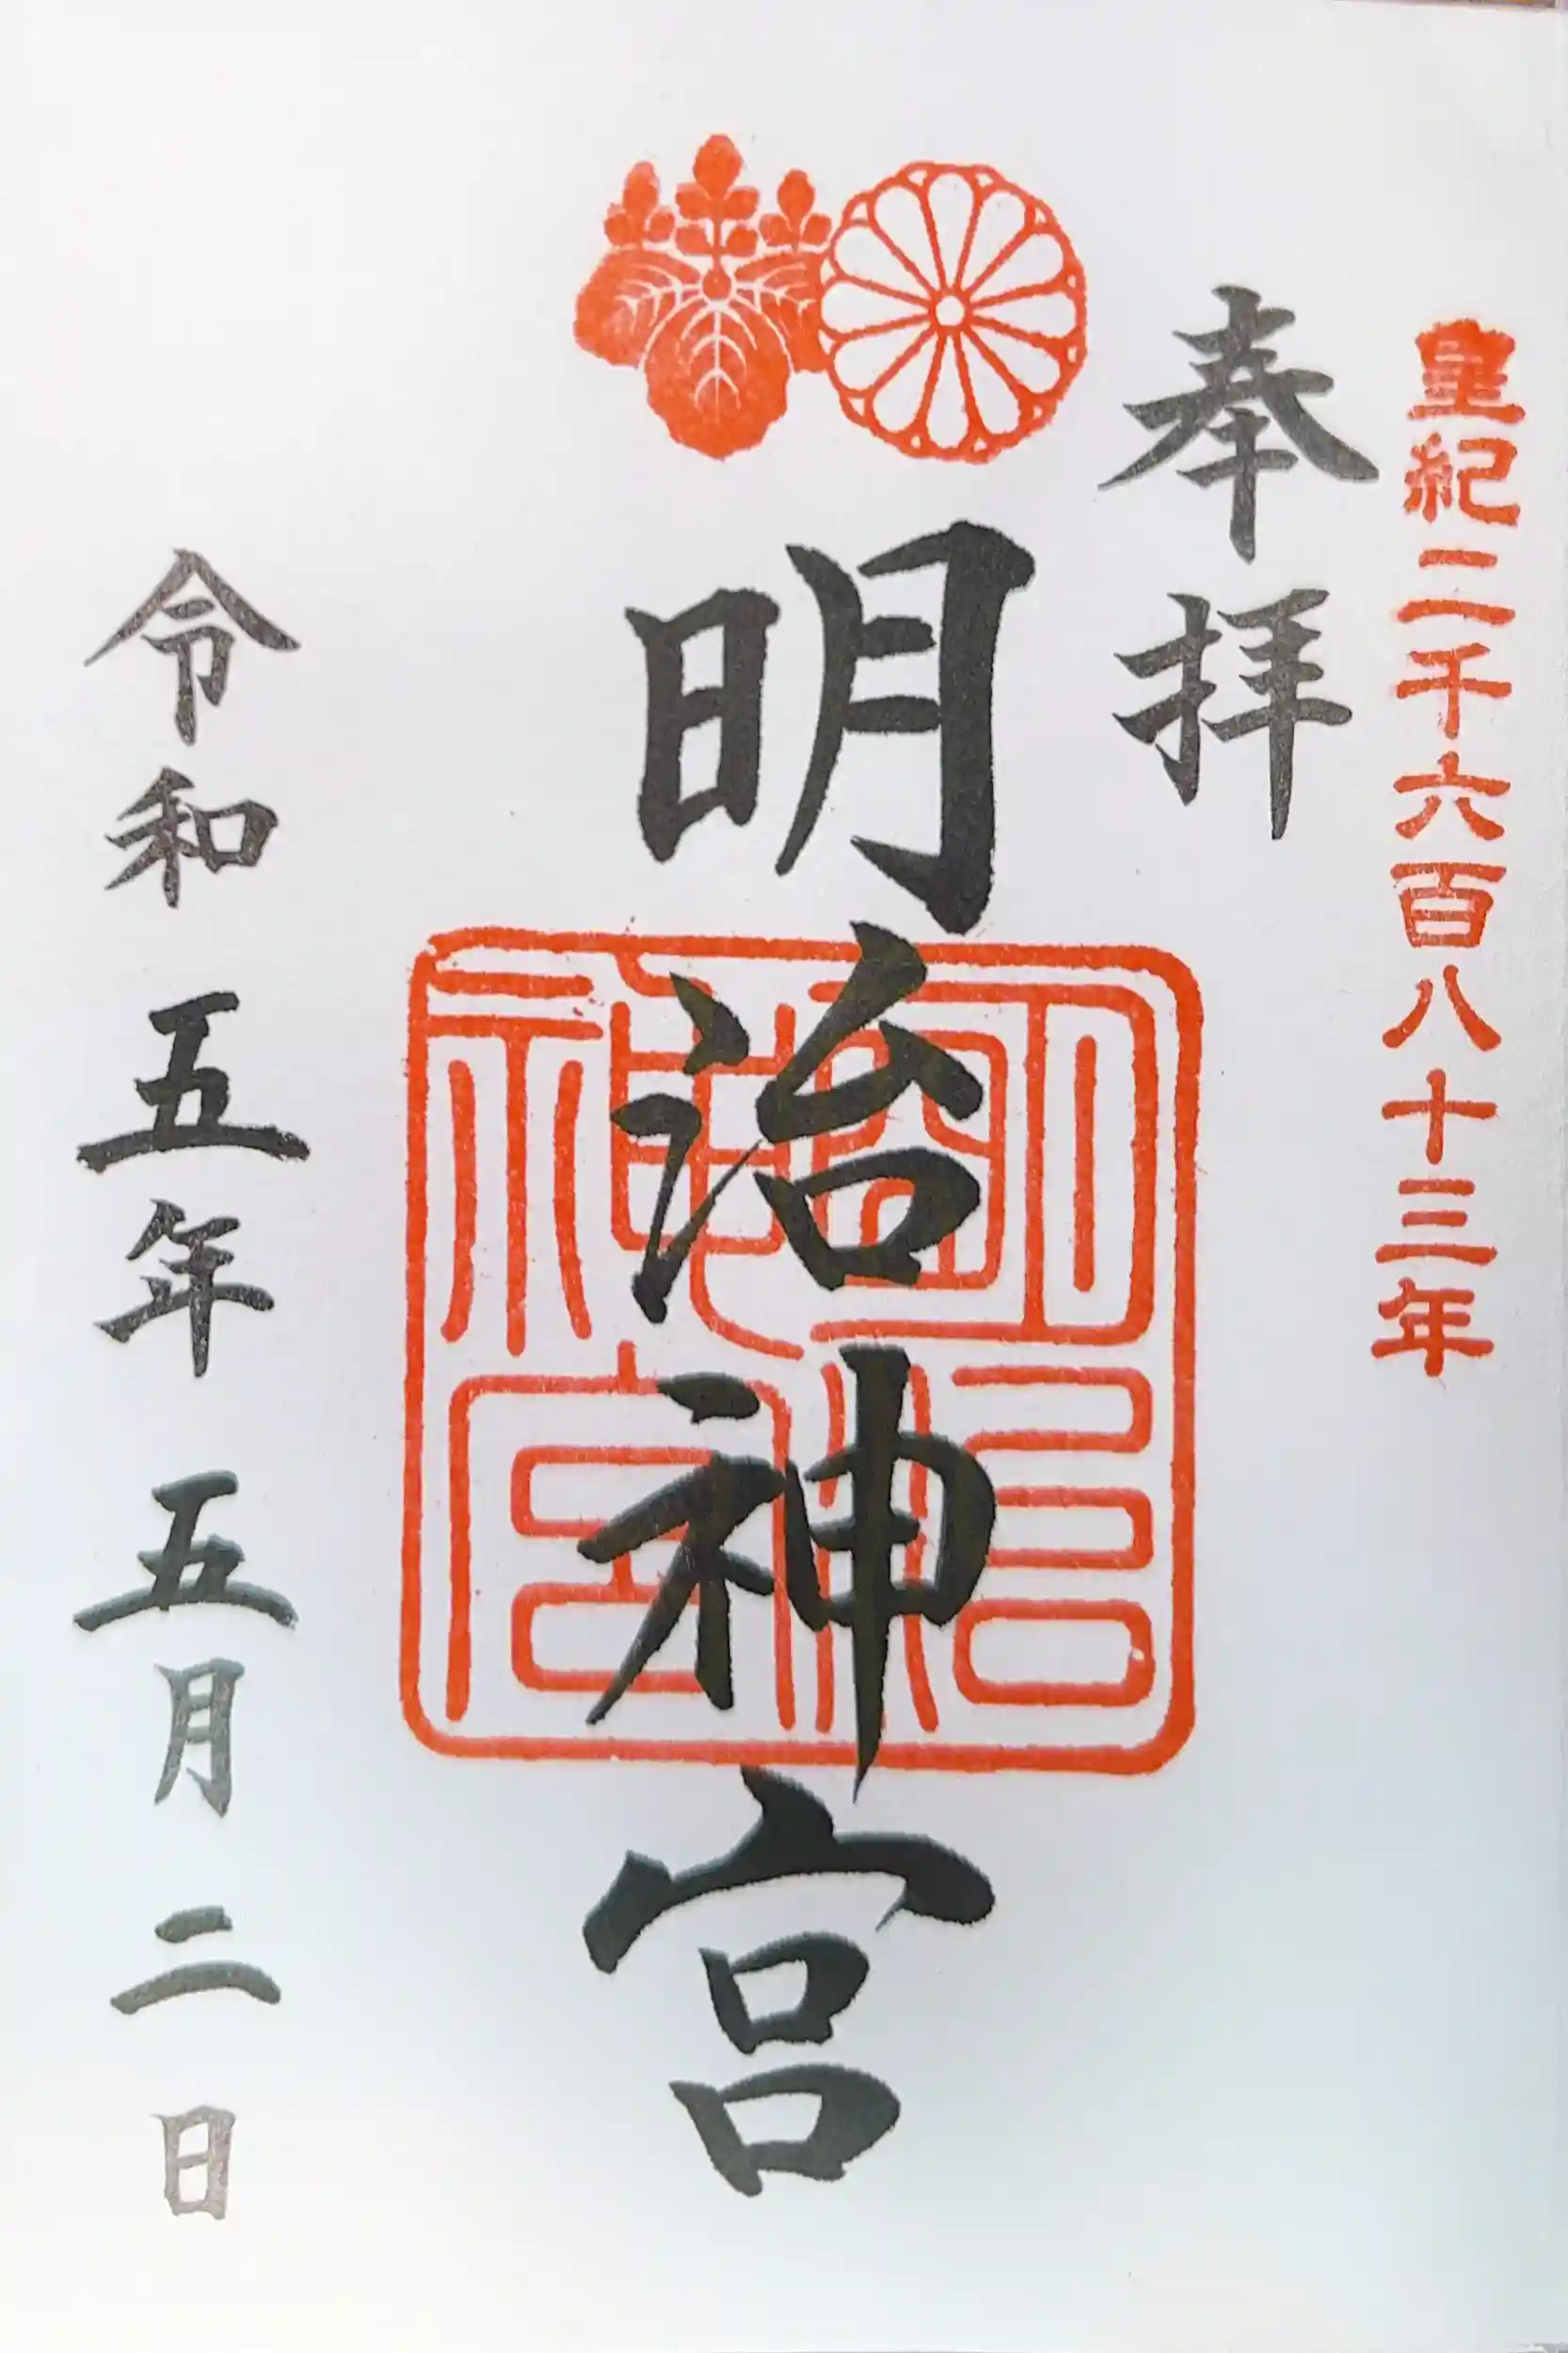 皇紀二千六百八十三年
奉拝
明治神宮
明治
神宮
令和五年五月二日